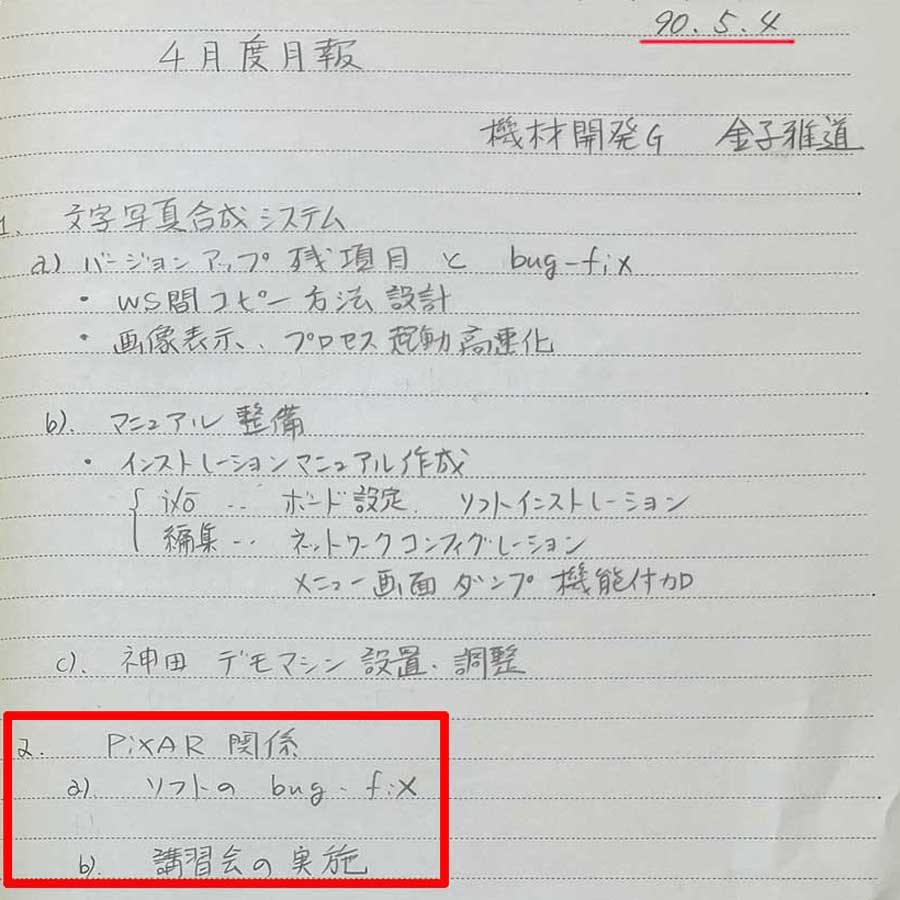 90.5.4
4月度月報
機材開発G 金子雅道
1. 文字写真合成システム
a) バージョンアップ 残項目 と bug-fix
・ WS間コピー方法設計
・ 画像表示、プロセス起動高速化
b). マニュアル整備
・ インストレーションマニュアル作成
i/o ‥ ボード設定. ソフトインストレーション
編集 ‥ ネットワークコンフィグレーション
メニュー画面ダンプ機能付加
c). 神田 デモマシン設置・調整
2. PiXAR 関係
a). ソフトの bug-fix
b). 講習会の実施